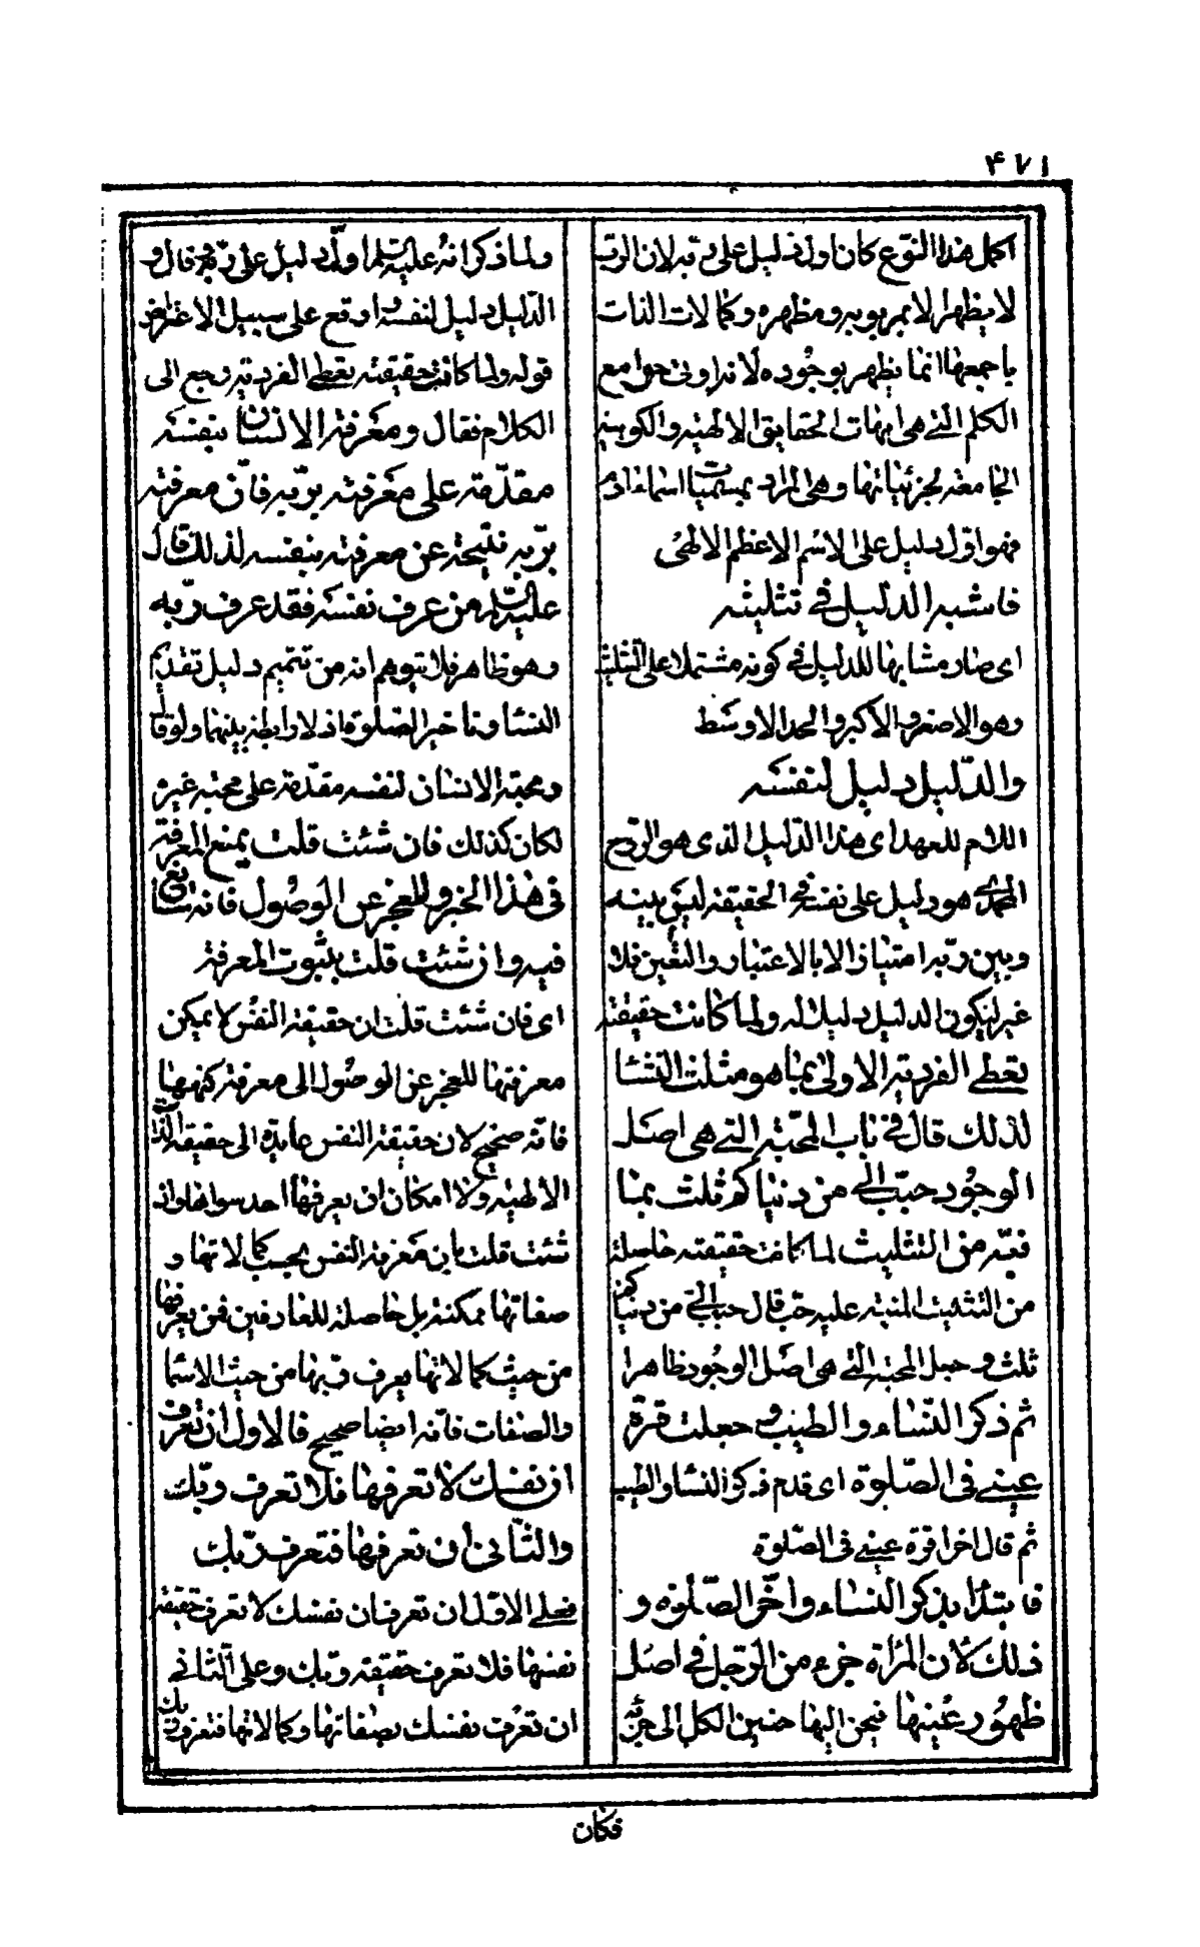 ۴۷۱
اكمل هذا النوع كان اول دليل على ربه لان الرب
لا يظهر الا بمربوبه ومظهره وكمالات الذات
باجمعها انما يظهر بوجوده لانه اوتى جوامع
الكلم التى هى امهات الحقايق الالهيه والكونيه
الجامعه لجزئياتها وهى المراد بمسميات اسماء ادم
فهو اول دليل على الاسم الاعظم الالهى
فاشبه الدليل فى تثليثه
اى صار مشابها للدليل فى كونه مشتملا على التثليث
وهو الاصغر والاكبر والحد الاوسط
والدّليل دليل لنفسه
اللام للعهد اى هذا الدليل الذى هو الروح
المحمدى هو دليل على نفسه فى الحقيقه ليس بينه
وبين ربه امتياز الا بالاعتبار والتعين فلا
غير ليكون الدليل دليلا له ولما كانت حقيقته
تعطى الفرديه الاولى بما هو مثلث النشا
لذلك قال فى باب المحبّة التى هى اصل
الوجود حبّب الىّ من دنياكم ثلث بما
فيه من التثليث لما كانت حقيقته حاصلة
من التثليث المنبه عليه حب قال حبب الىّ من دنياكم
ثلث وجعل المحبه التى هى اصل الوجود ظاهرا
ثم ذكر النّساء والطيب وجعلت قرّة
عينى فى الصّلوة اى قدم ذكر النسا والطيب
ثم قال اخرا قرة عينى فى الصّلوة
فابتدا بذكر النساء واخّر الصّلوة و
ذلك لان المراة جزء من الرّجل فى اصل
ظهور عينها فيحن اليها حنين الكل الى جزئه
ولما ذكر انه عليه السلم اول دليل على ربه فقال و
الدليل دليل لنفسه اوقع على سبيل الاعتراض
قوله ولما كانت حقيقته تعطى الفرديه رجع الى
الكلام فقال ومعرفة الانسان بنفسه
مقدّمة على معرفته بربّه فانّ معرفته
بربّه نتيجة عن معرفته بنفسه لذلك قال
عليه السلم من عرف نفسه فقد عرف ربّه
وهو ظاهر فلا يتوهم انه من تتميم دليل تقديم
النسا وتاخير الصّلوة اذ لا رابطة بينهما ولو قال
ومحبة الانسان لنفسه مقدّمة على محبه غيره
لكان كذلك فان شئت قلت بمنع المعرفة
فى هذا الخبر والعجز عن الوصول فانه سائغ
فيه وان شئت قلت بثبوت المعرفة
اى فان شئت قلت ان حقيقة النفس لا يمكن
معرفتها للعجز عن الوصول الى معرفة كنهها
فانه صحيح لان حقيقة النفس عايدة الى حقيقة الذات
الالهيه ولا امكان ان يعرفها احد سواها وان
شئت قلت بان معرفة النفس بحسب كمالاتها و
صفاتها ممكنة بل حاصلة للعارفين فمن يعرفها
من حيث كمالاتها يعرف ربها من حيث الاسما
والصفات فانه ايضا صحيح فالاول ان تعرف
ان نفسك لا تعرفها فلا تعرف ربّك
والثّانى ان تعرفها فتعرف ربّك
فعلى الاول ان تعرف ان نفسك لا تعرف حقيقة
نفسها فلا تعرف حقيقه ربك وعلى الثانى
ان تعرف نفسك بصفاتها وكمالاتها فتعرف ربك
فكان